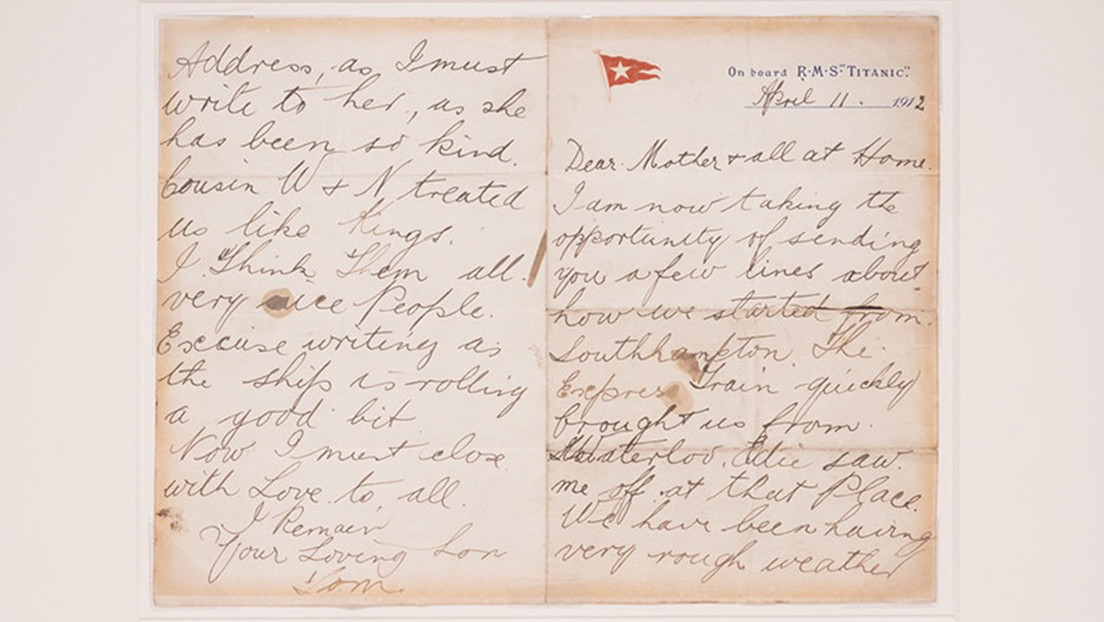 On board R.M.S "TITANIC".
April 11. 1912
Dear Mother & all at Home.
I am now taking the
opportunity of sending
you a few lines about
how we started from.
Southhampton. The.
Express Train quickly
brought us from.
Waterloo. Edie saw.
me off at that Place.
We have been having
very rough weather
Address, as I must
write to her, as she
has been so kind.
Cousin W & N treated
us like Kings.
I Think Them all.
very nice People.
Excuse writing as
the ship is rolling
a good bit
Now I must close.
with Love to all.
I Remain
Your Loving Son
Tom.